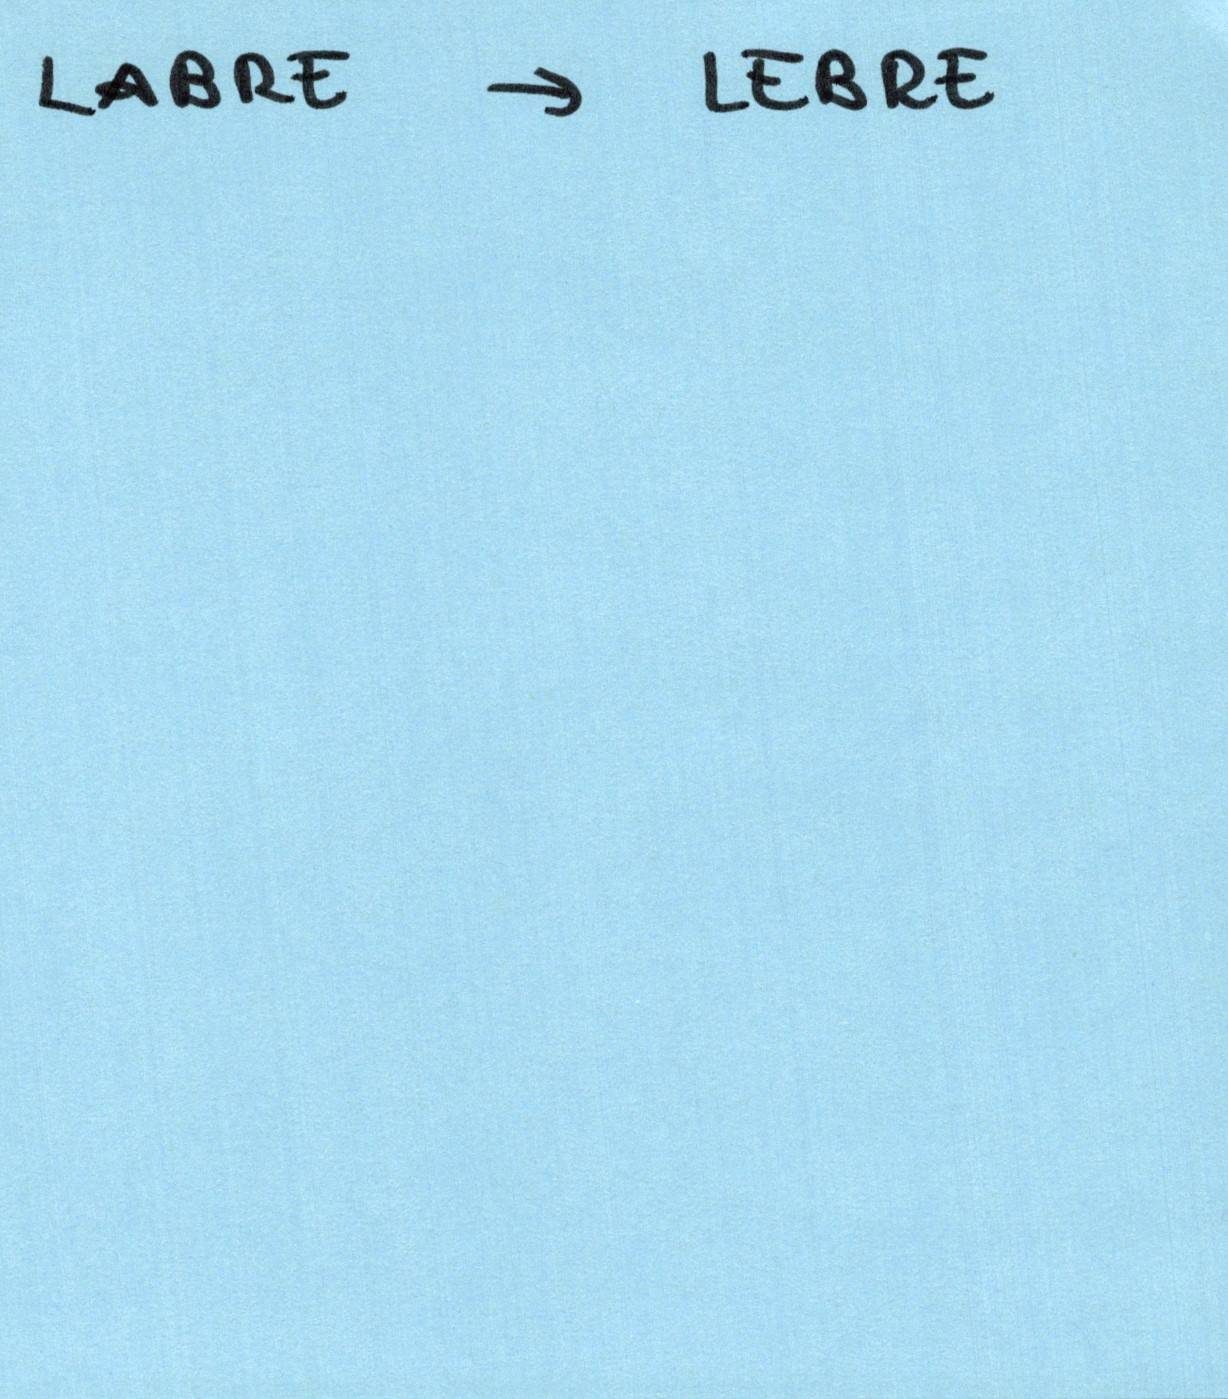 LABRE → LEBRE